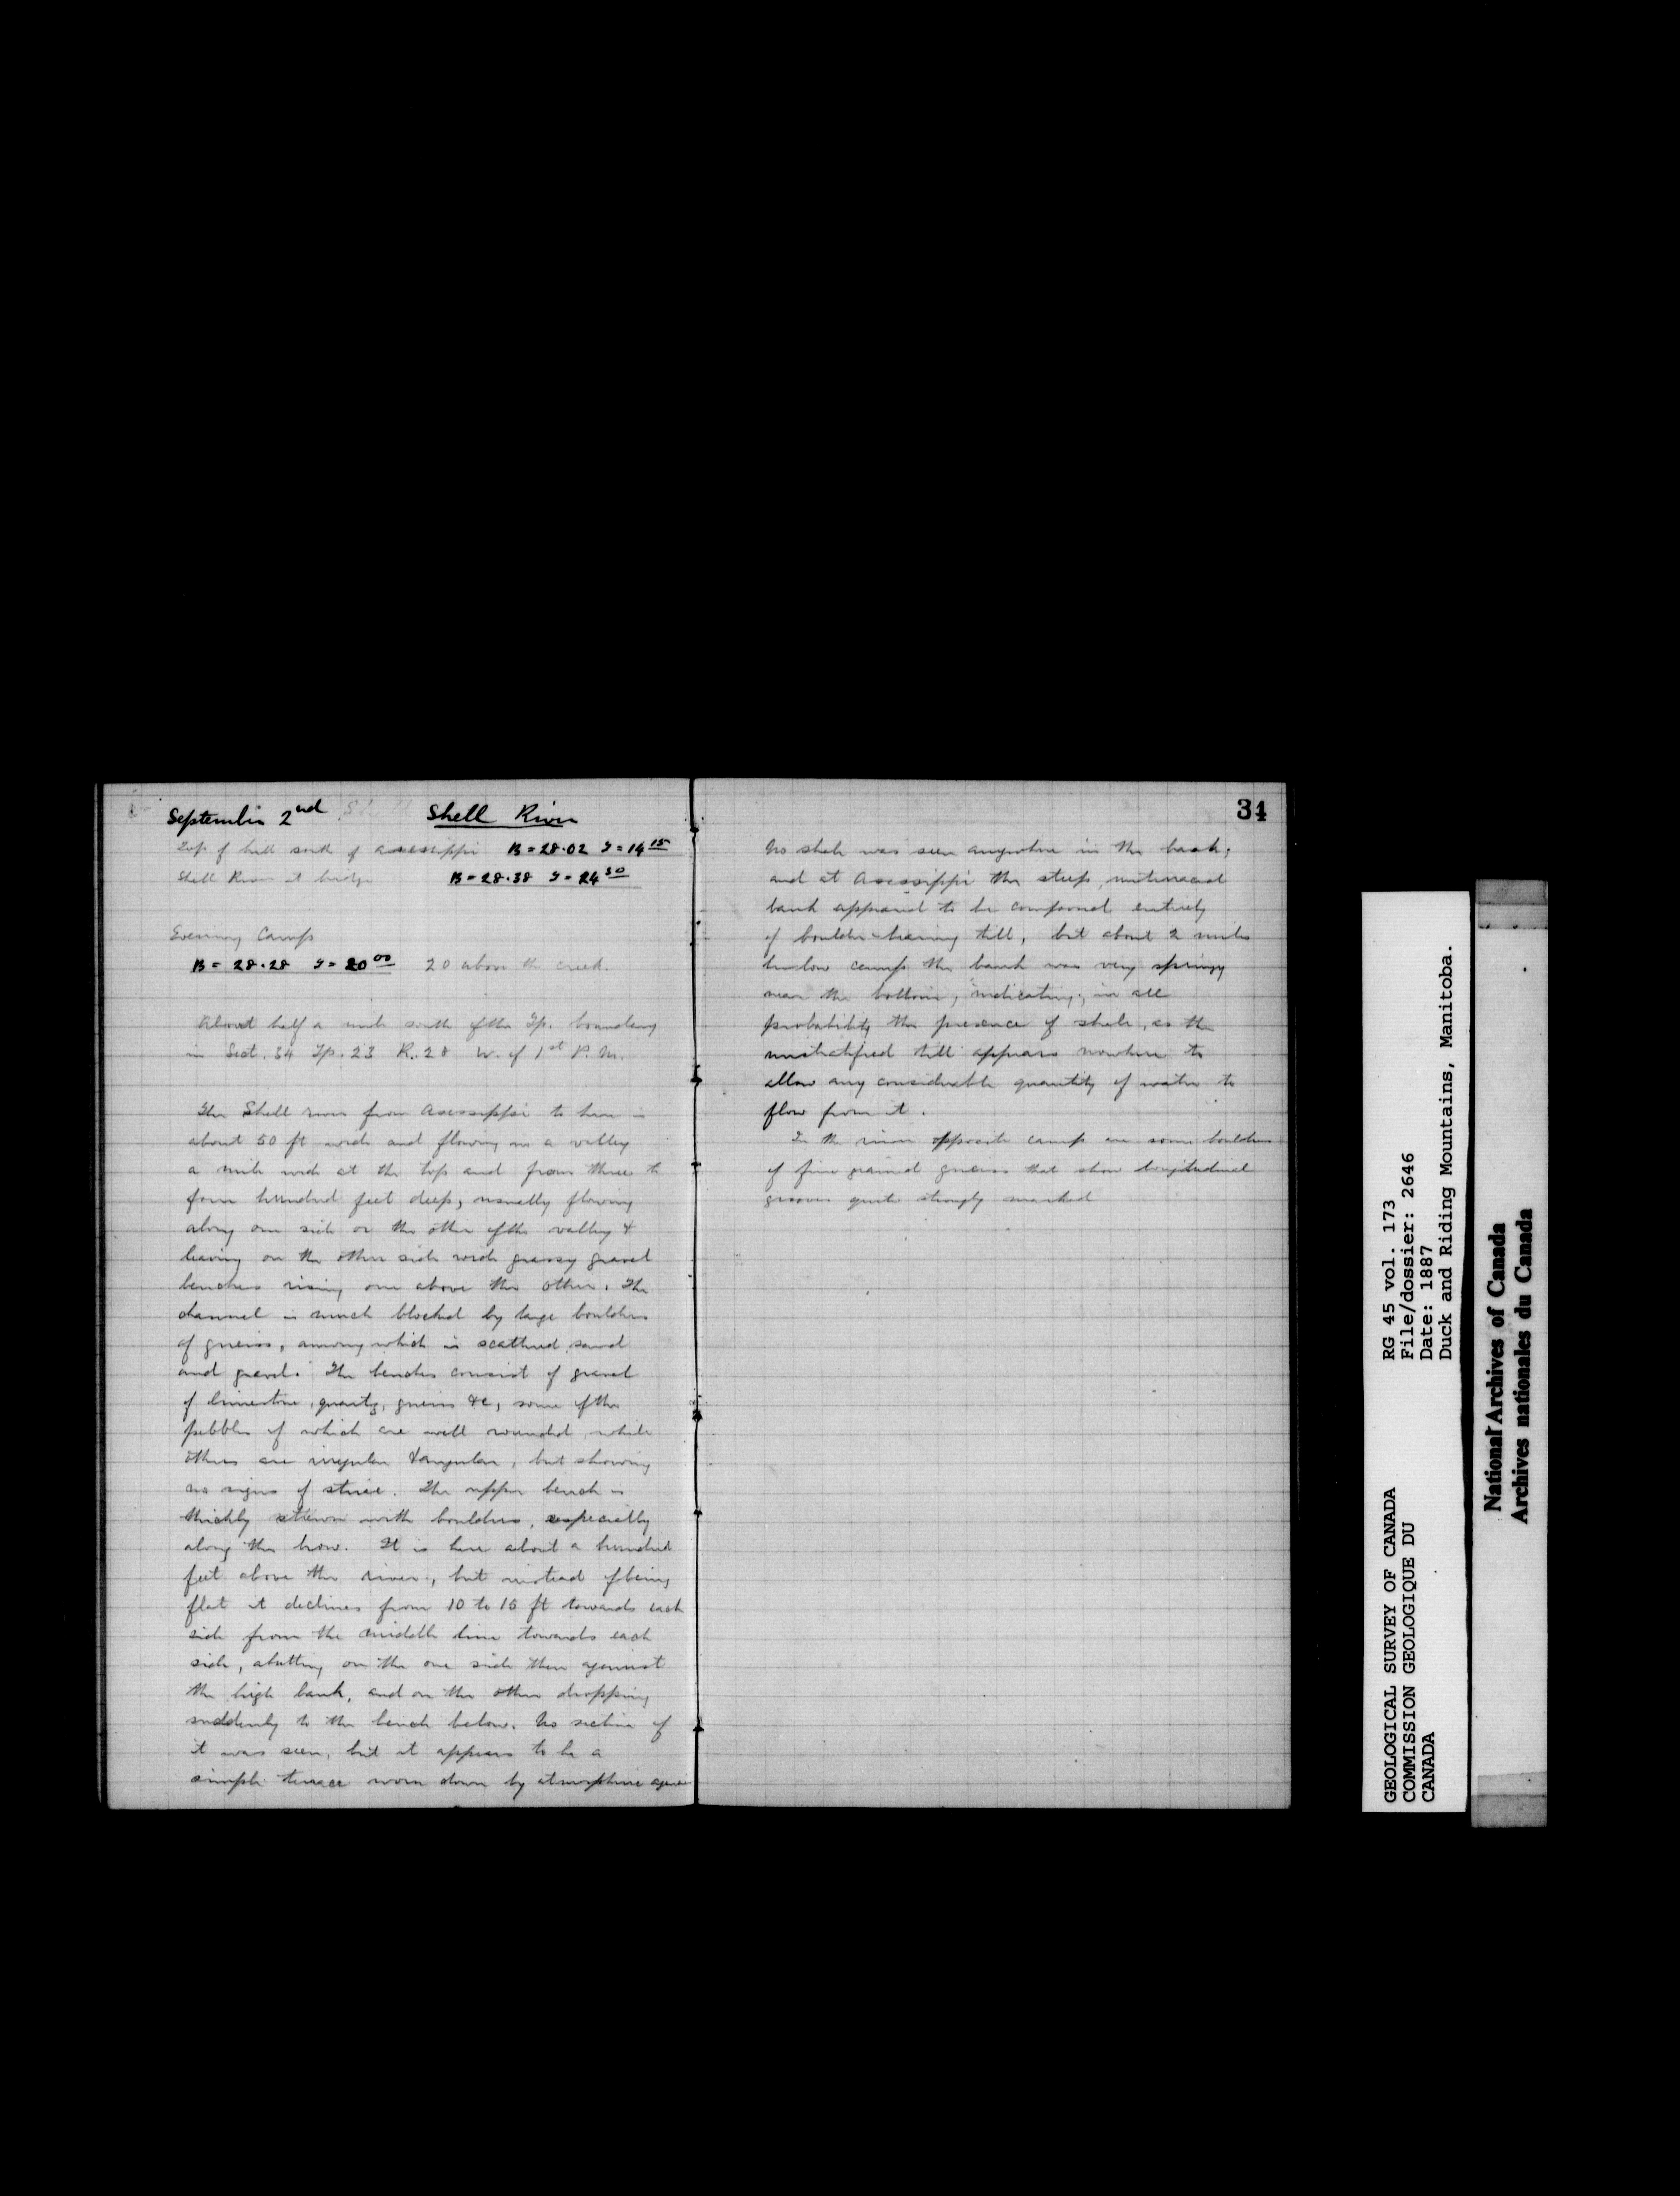 September 2nd Shell River
Top of hill south of Assessippi B = 28.02 T = 14 15
Shell River at bridge B = 28.38 T = 24 30
Evening Camp
B = 28.28 T = 20 00 20 above the creek.
About half a mile south of the Tp. boundary
in Sect. 34 Tp. 23 R. 28 W. of 1st P. M.
The Shell river from Asessippi to here is
about 50 ft wide and flowing in a valley
a mile wide at the top and from three to
four hundred feet deep, usually flowing
along one side or the other of the valley &
leaving on the other side wide grassy gravel
benches rising one above the other. The
channel is much blocked by large boulders
of gneiss, among which is scattered sand
and gravel. The benches consist of gravel
of limestone, quartz, gneiss &c, some of the
pebbles of which are well rounded, while
others are irregular & angular, but showing
no signs of striae. The upper bench is
thickly strewn with boulders, especially
along the brow. It is here about a hundred
feet above the river, but instead of being
flat it declines from 10 to 15 ft towards each
side from the middle line towards each
side, abutting on the one side then against
the high bank, and on the other dropping
suddenly to the bench below. No section of
it was seen, but it appears to be a
simple terrace worn down by atmospheric
34
No shale was seen anywhere in the bank,
and at Asessippi the steep, unterraced
bank appeared to be composed entirely
of boulder-bearing till, but about 2 miles
below camp the bank was very springy
near the bottom, indicating, in all
probability the presence of shale, as the
unstratified till appears nowhere to
allow any considerable quantity of water to
flow from it.
In the river opposite camp are some boulders
of fine grained gneiss that show longitudinal
grooves quite strongly marked
GEOLOGICAL SURVEY OF CANADA
COMMISSION GEOLOGIQUE DU
CANADA
RG 45 vol. 173
File/dossier: 2646
Date: 1887
Duck and Riding Mountains, Manitoba.
National Archives of Canada
Archives nationales du Canada